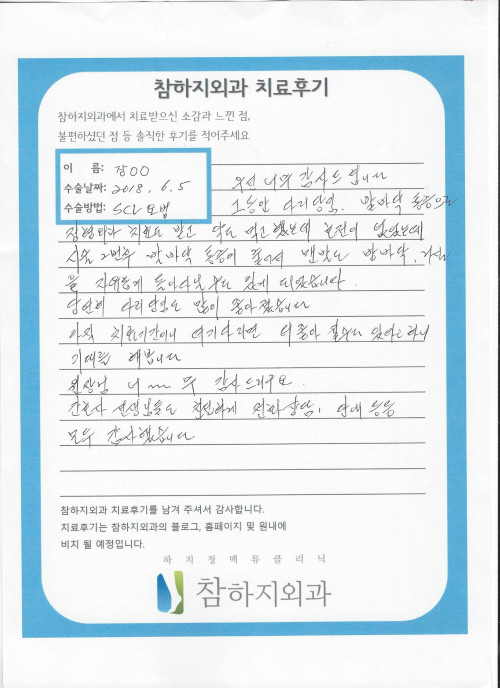 참하지외과 치료후기
참하지외과에서 치료받으신 소감과 느낀 점,
불편하셨던 점 등 솔직한 후기를 적어주세요
이 름: 장OO
수술날짜: 2018. 6. 5
수술방법: SCL요법
우선 너무 감사드립니다
그동안 다리당김. 발바닥 통증으로
정형외과 치료도 받고 약도 먹고 했는데 호전이 없었는데
시술 2번후 발바닥 통증이 풀어져 맨발도 발바닥,
을 자유롭게 돌아다닐 수도 있게 되었습니다.
당연히 다리당김도 많이 좋아졌습니다
아직 치료기간이니 여기다라면 더 좋아 질수도 있다고하니
기대를 해봅니다
원장님 너 ~~ 무 감사드리구요.
간호사 선생님들도 친절하게 전화상담, 안내 등등
모두 감사했습니다
참하지외과 치료후기를 남겨 주셔서 감사합니다.
치료후기는 참하지외과의 블로그, 홈페이지 및 원내에
비치 될 예정입니다.
하지정맥류클리닉
참하지외과